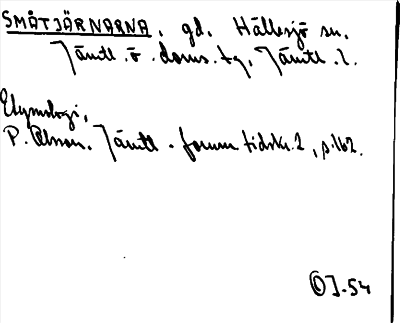 SMÅTJÄRNARNA, gd. Hällesjö sn.
Jämtl. ö. doms. tg, Jämtl. l.
Etymologi,
P. Olsson. Jämtl. fornm. tidskr. 2, s. 162.
OJ-54